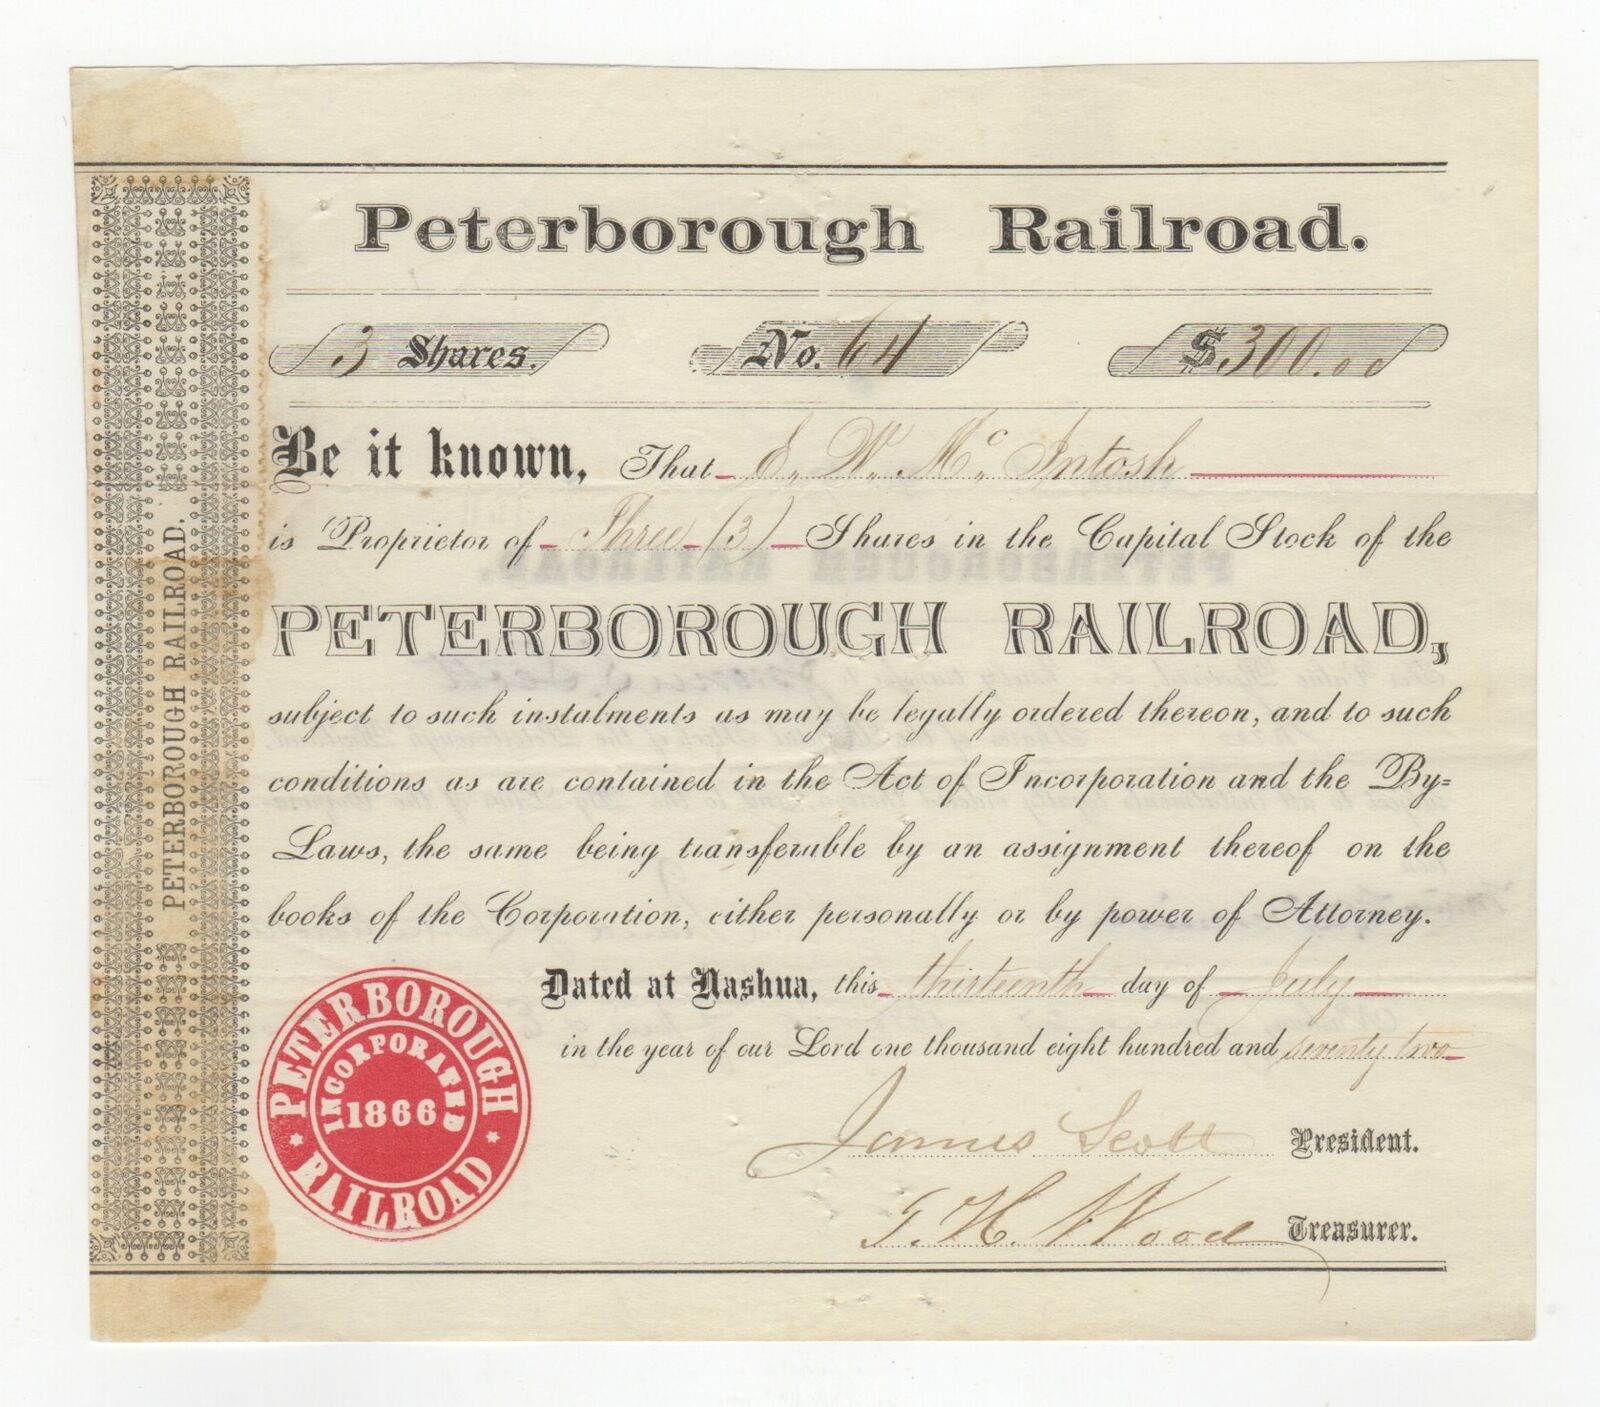 Peterborough Railroad.
3 Shares. No. 64 $300.00
Be it known, That E. W. Mc. Intosh
is Proprietor of Three (3) Shares in the Capital Stock of the
PETERBOROUGH RAILROAD,
subject to such instalments as may be legally ordered thereon, and to such
conditions as are contained in the Act of Incorporation and the By=
Laws, the same being transferable by an assignment thereof on the
books of the Corporation, either personally or by power of Attorney.
Dated at Nashua, this thirteenth day of July
in the year of our Lord one thousand eight hundred and seventy two
James Scott President.
T. H. Wood Treasurer.
PETERBOROUGH RAILROAD.
PETERBOROUGH RAILROAD
INCORPORATED
1866